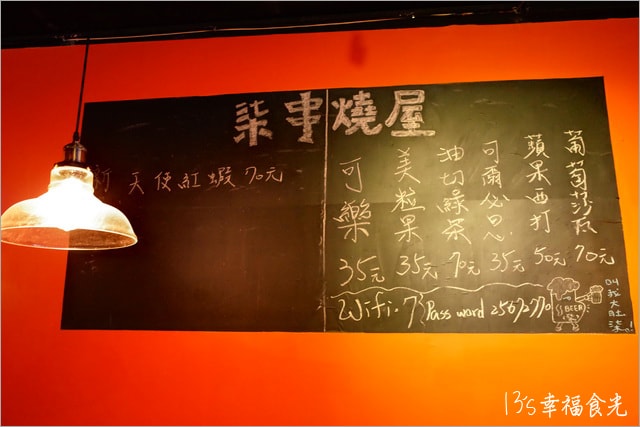 柒串燒屋
天使紅蝦 70元
可樂 35元
美粒果 35元
油切綠茶 70元
可爾必思 35元
蘋果西打 50元
葡萄莎瓦 70元
Wifi.7 Pass ward 25672770
BEER
04
我大肚柒
13's幸福食光